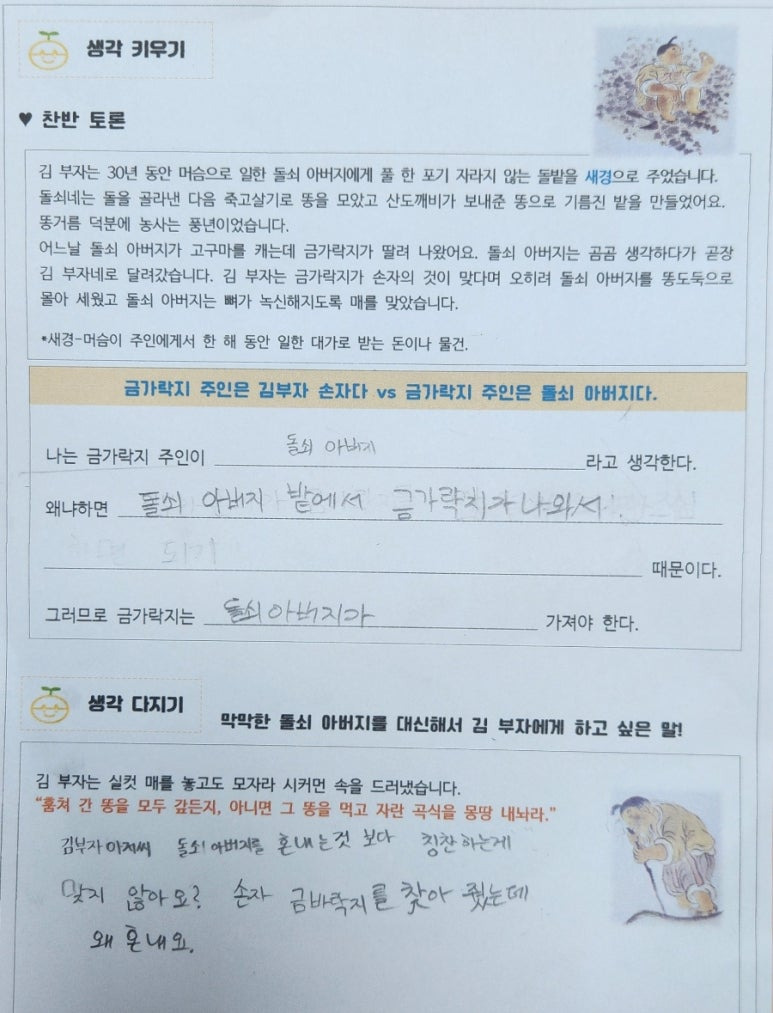 생각 키우기
♥ 찬반 토론
김 부자는 30년 동안 머슴으로 일한 돌쇠 아버지에게 풀 한 포기 자라지 않는 돌밭을 새경으로 주었습니다.
돌쇠네는 돌을 골라낸 다음 죽고살기로 똥을 모았고 산도깨비가 보내준 똥으로 기름진 밭을 만들었어요.
똥거름 덕분에 농사는 풍년이었습니다.
어느날 돌쇠 아버지가 고구마를 캐는데 금가락지가 딸려 나왔어요. 돌쇠 아버지는 곰곰 생각하다가 곧장
김 부자네로 달려갔습니다. 김 부자는 금가락지가 손자의 것이 맞다며 오히려 돌쇠 아버지를 똥도둑으로
몰아 세웠고 돌쇠 아버지는 뼈가 녹신해지도록 매를 맞았습니다.
*새경-머슴이 주인에게서 한 해 동안 일한 대가로 받는 돈이나 물건.
금가락지 주인은 김부자 손자다 vs 금가락지 주인은 돌쇠 아버지다.
나는 금가락지 주인이 돌쇠 아버지 라고 생각한다.
왜냐하면 돌쇠 아버지 밭에서 금가락지가 나와서.
때문이다.
그러므로 금가락지는 돌쇠아버지가 가져야 한다.
생각 다지기
막막한 돌쇠 아버지를 대신해서 김 부자에게 하고 싶은 말!
김 부자는 실컷 매를 놓고도 모자라 시커먼 속을 드러냈습니다.
“훔쳐 간 똥을 모두 갚든지, 아니면 그 똥을 먹고 자란 곡식을 몽땅 내놔라.”
김부자 아저씨 돌쇠 아버지를 혼내는것 보다 칭찬하는게
맞지 않아요? 손자 금바락지를 찾아 줬는데
왜 혼내요.